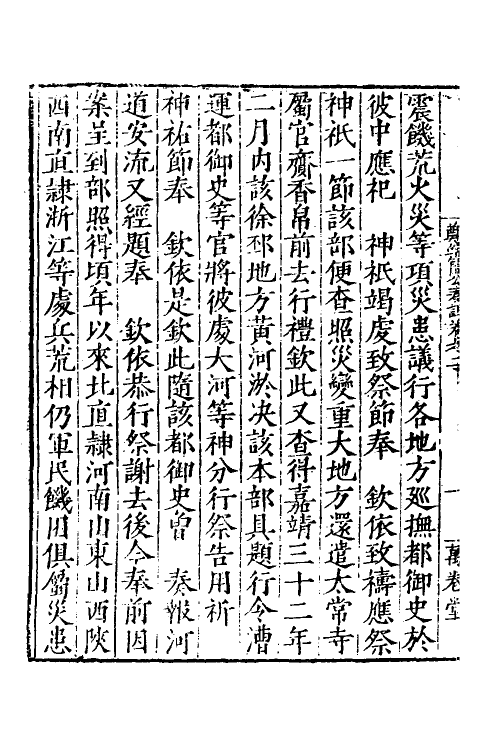 震饑荒火災等項災患議行各地方廵撫都御史於
彼中應祀　神祇竭虔致祭節奉　欽依致禱應祭
神祇一節該部便查照災變重大地方還遣太常寺
屬官齎香帛前去行禮欽此又查得嘉靖三十二年
二月内該徐邳地方黄河淤决該本部具題行令漕
運都御史等官將彼處大河等神分行祭告用祈
神祐節奉　欽依是欽此隨該都御史曾　奏報河
道安流又經題奉　欽依恭行祭謝去後今奉前因
案呈到部照得頃年以來北直隷河南山東山西陜
西南直隷浙江等處兵荒相仍軍民饑困俱屬災患
一
萬卷堂